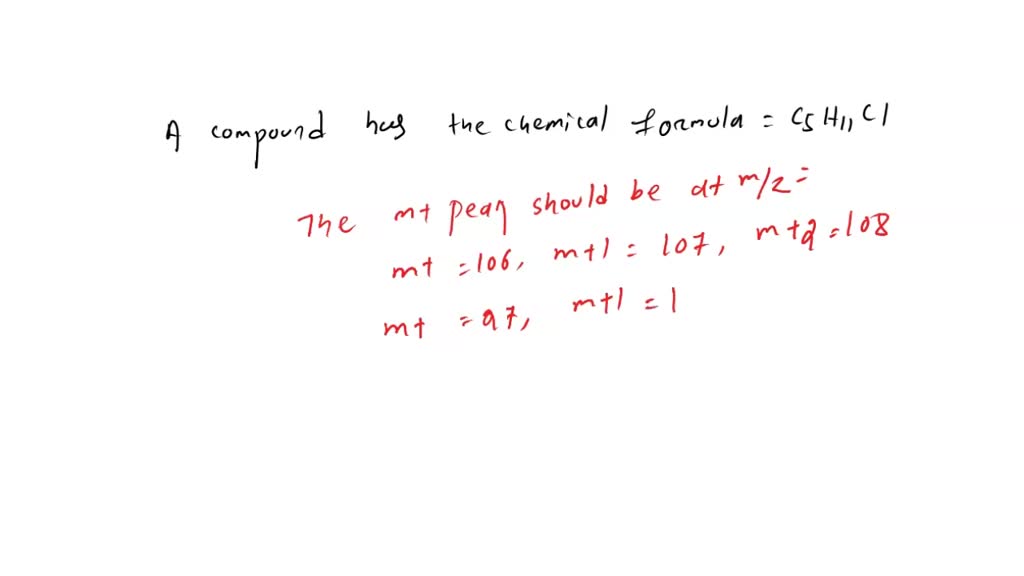 A compound has the chemical formula = C5H11Cl
The m+ peaq should be at m/z =
m+ = 106, m+1 = 107, m+2 = 108
m+ = 97, m+1 = 1